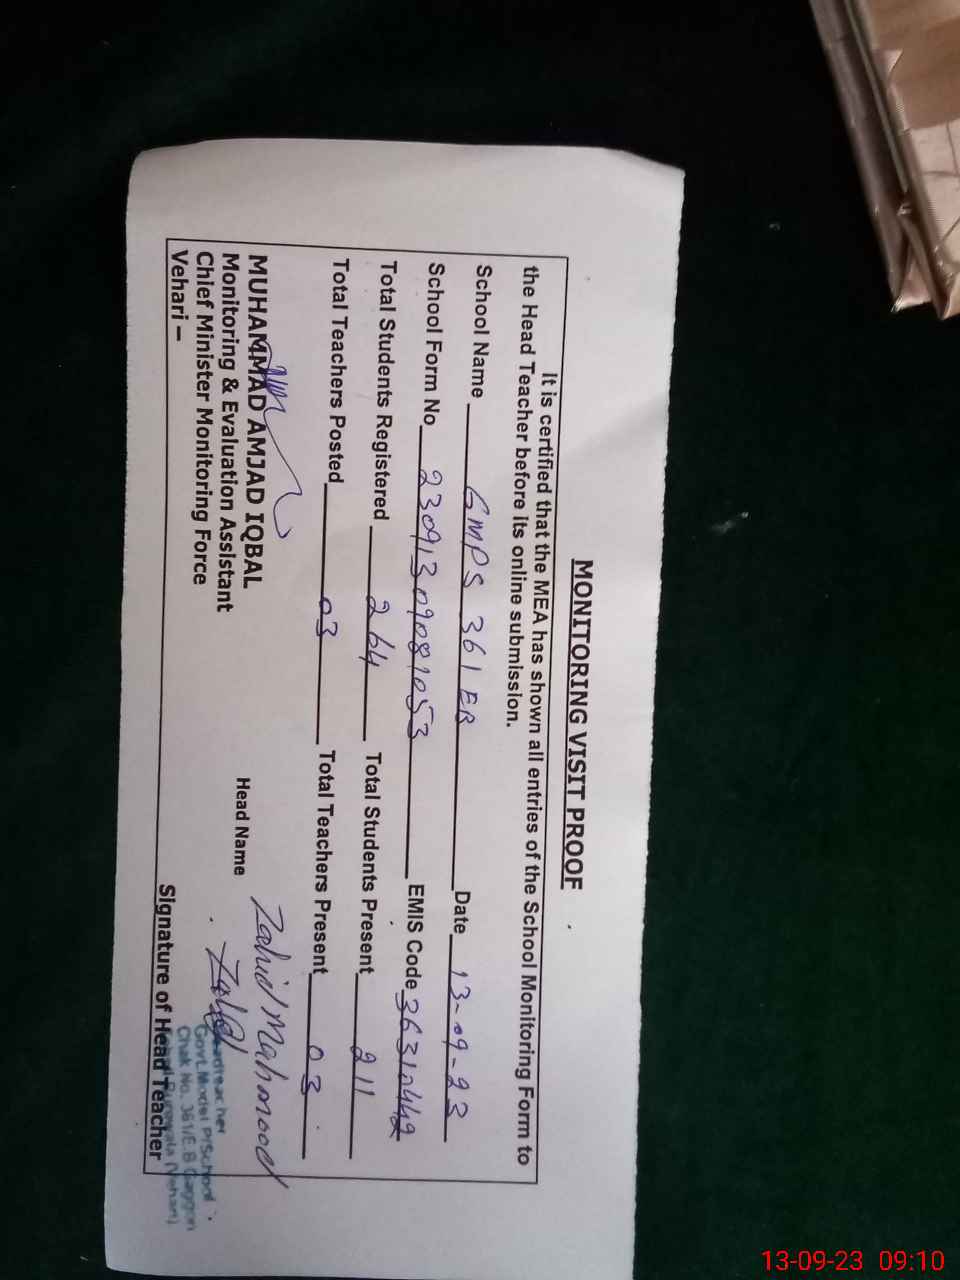 MONITORING VISIT PROOF
It is certified that the MEA has shown all entries of the School Monitoring Form to
the Head Teacher before its online submission.
School Name GMPS 361 EB Date 13-09-23
School Form No 23091309081053 EMIS Code 36310442
Total Students Registered 264 Total Students Present 211
Total Teachers Posted 03 Total Teachers Present 03
MUHAMMAD AMJAD IQBAL
Monitoring & Evaluation Assistant
Chief Minister Monitoring Force
Vehari –
Head Name Zahid Mahmood
Zahid
Signature of Head Teacher
Headteacher
Govt. Model P/School
Chak No. 361/E.B Gaggoo
Burewala (Vehari)
13-09-23 09:10